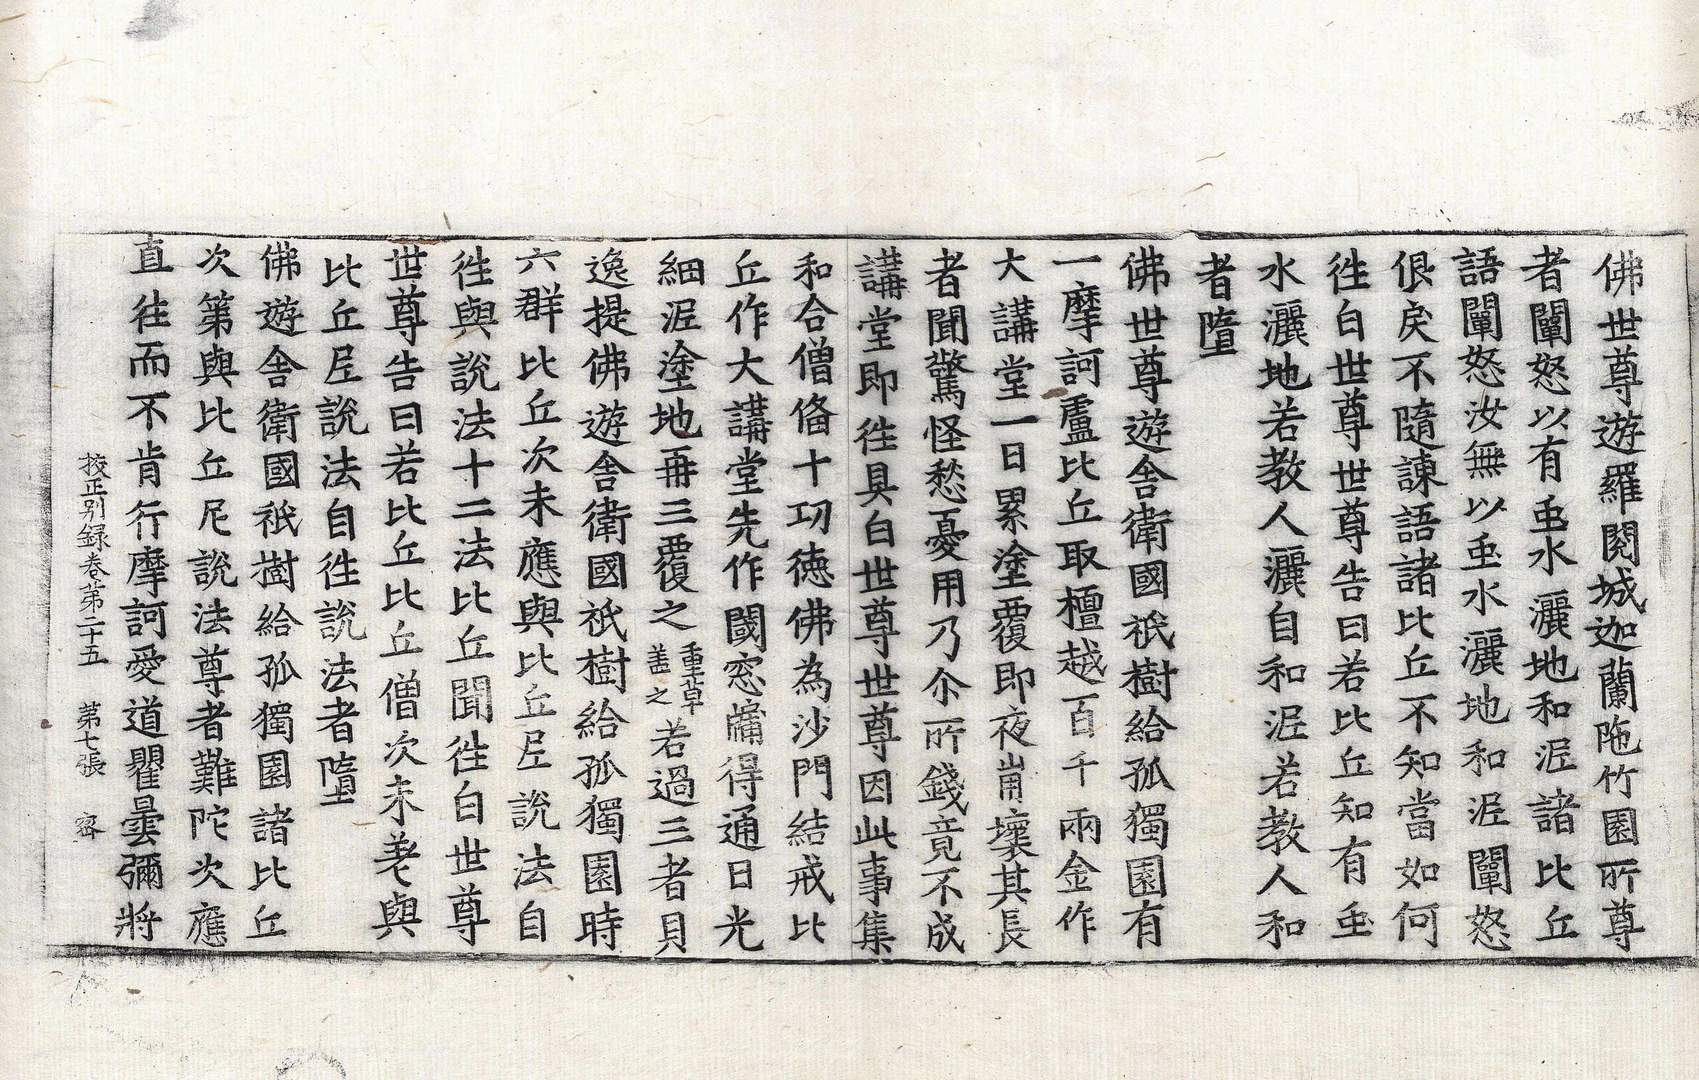 佛世尊遊羅閱城迦蘭陁竹園所尊
者闡怒以有虫水灑地和泥諸比丘
語闡怒汝無以虫水灑地和泥闡怒
佷戾不隨諫語諸比丘不知當如何
徃白世尊世尊告曰若比丘知有虫
水灑地若教人灑自和泥若教人和
者墮
佛世尊遊舍衛國祇樹給孤獨園有
一摩訶盧比丘取檀越百千兩金作
大講堂一日累塗覆即夜崩壞其長
者聞驚怪愁憂用乃尒所錢竟不成
講堂即徃具白世尊世尊因此事集
和合僧俻十㓛德佛為沙門結戒比
丘作大講堂先作閫窓牖得通日光
細泥塗地再三覆之重草善之若過三者貝
逸提佛遊舍衛國祇樹給孤獨園時
六群比丘次未應與比丘尼說法自
徃與說法十二法比丘聞徃白世尊
世尊告曰若比丘比丘僧次未差與
比丘尼說法自徃說法者墮
佛遊舍衛國祇樹給孤獨園諸比丘
次第與比丘尼說法尊者難陀次應
直徃而不肯行摩訶愛道瞿曇彌將
挍正别録卷第二十五　第七張　密